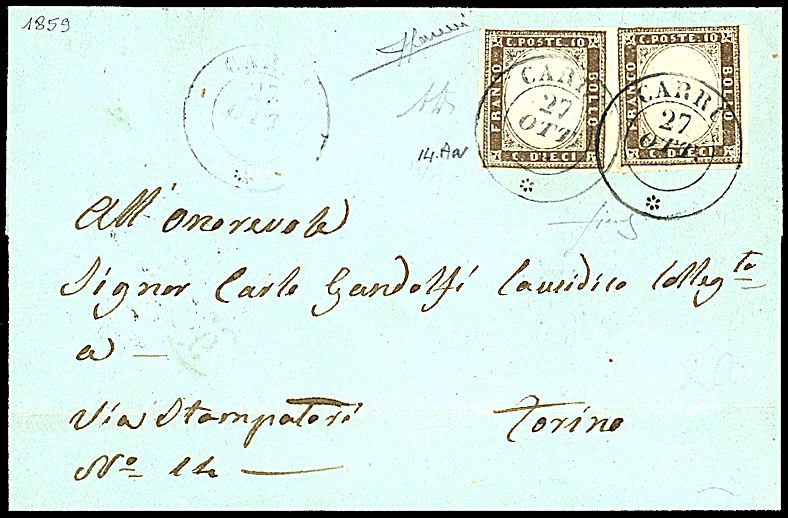 1859
C. POSTE. 10
FRANCO
BOLLO
C. DIECI
C. POSTE. 10
FRANCO
BOLLO
C. DIECI
CAR
27
OTT
CARR
27
OTT
CARRÙ
27
OTT
All' Onorevole
Signor Carlo Gandolfi Causidico Colleg.to
a —
Via Stampatori Torino
No 14 —